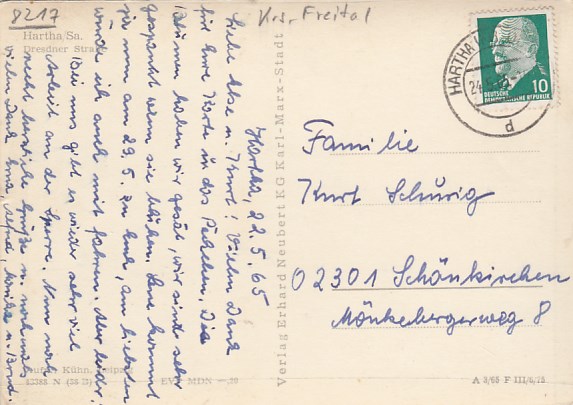 8217
Krs. Freital
Hartha/Sa.
Dresdner Straße
Hartha, 22.5.65
Liebe Ilse u. Kurt! Vielen Dank
für Eure Karte u. das Päckchen. Die
Blumen haben wir gesät, wir sind sehr
gespannt wenn sie blühen. Lene kommt
ja nun am 29.5. zu Euch, am liebsten
würde ich auch mit fahren. Aber leider.
Bei uns gibt es wieder sehr viel
Arbeit an der Sperre. Nun noch
recht herzliche Grüße u. nochmals
vielen Dank
Verlag Erhard Neubert KG Karl-Marx-Stadt
Kühn, Leipzig
EVP MDN -,20
HARTHA
24
d
10
DEUTSCHE
DEMOKRATISCHE REPUBLIK
Familie
Kurt Schurig
02301 Schönkirchen
Mönkebergerweg 8
A 3/65 F III/6/75